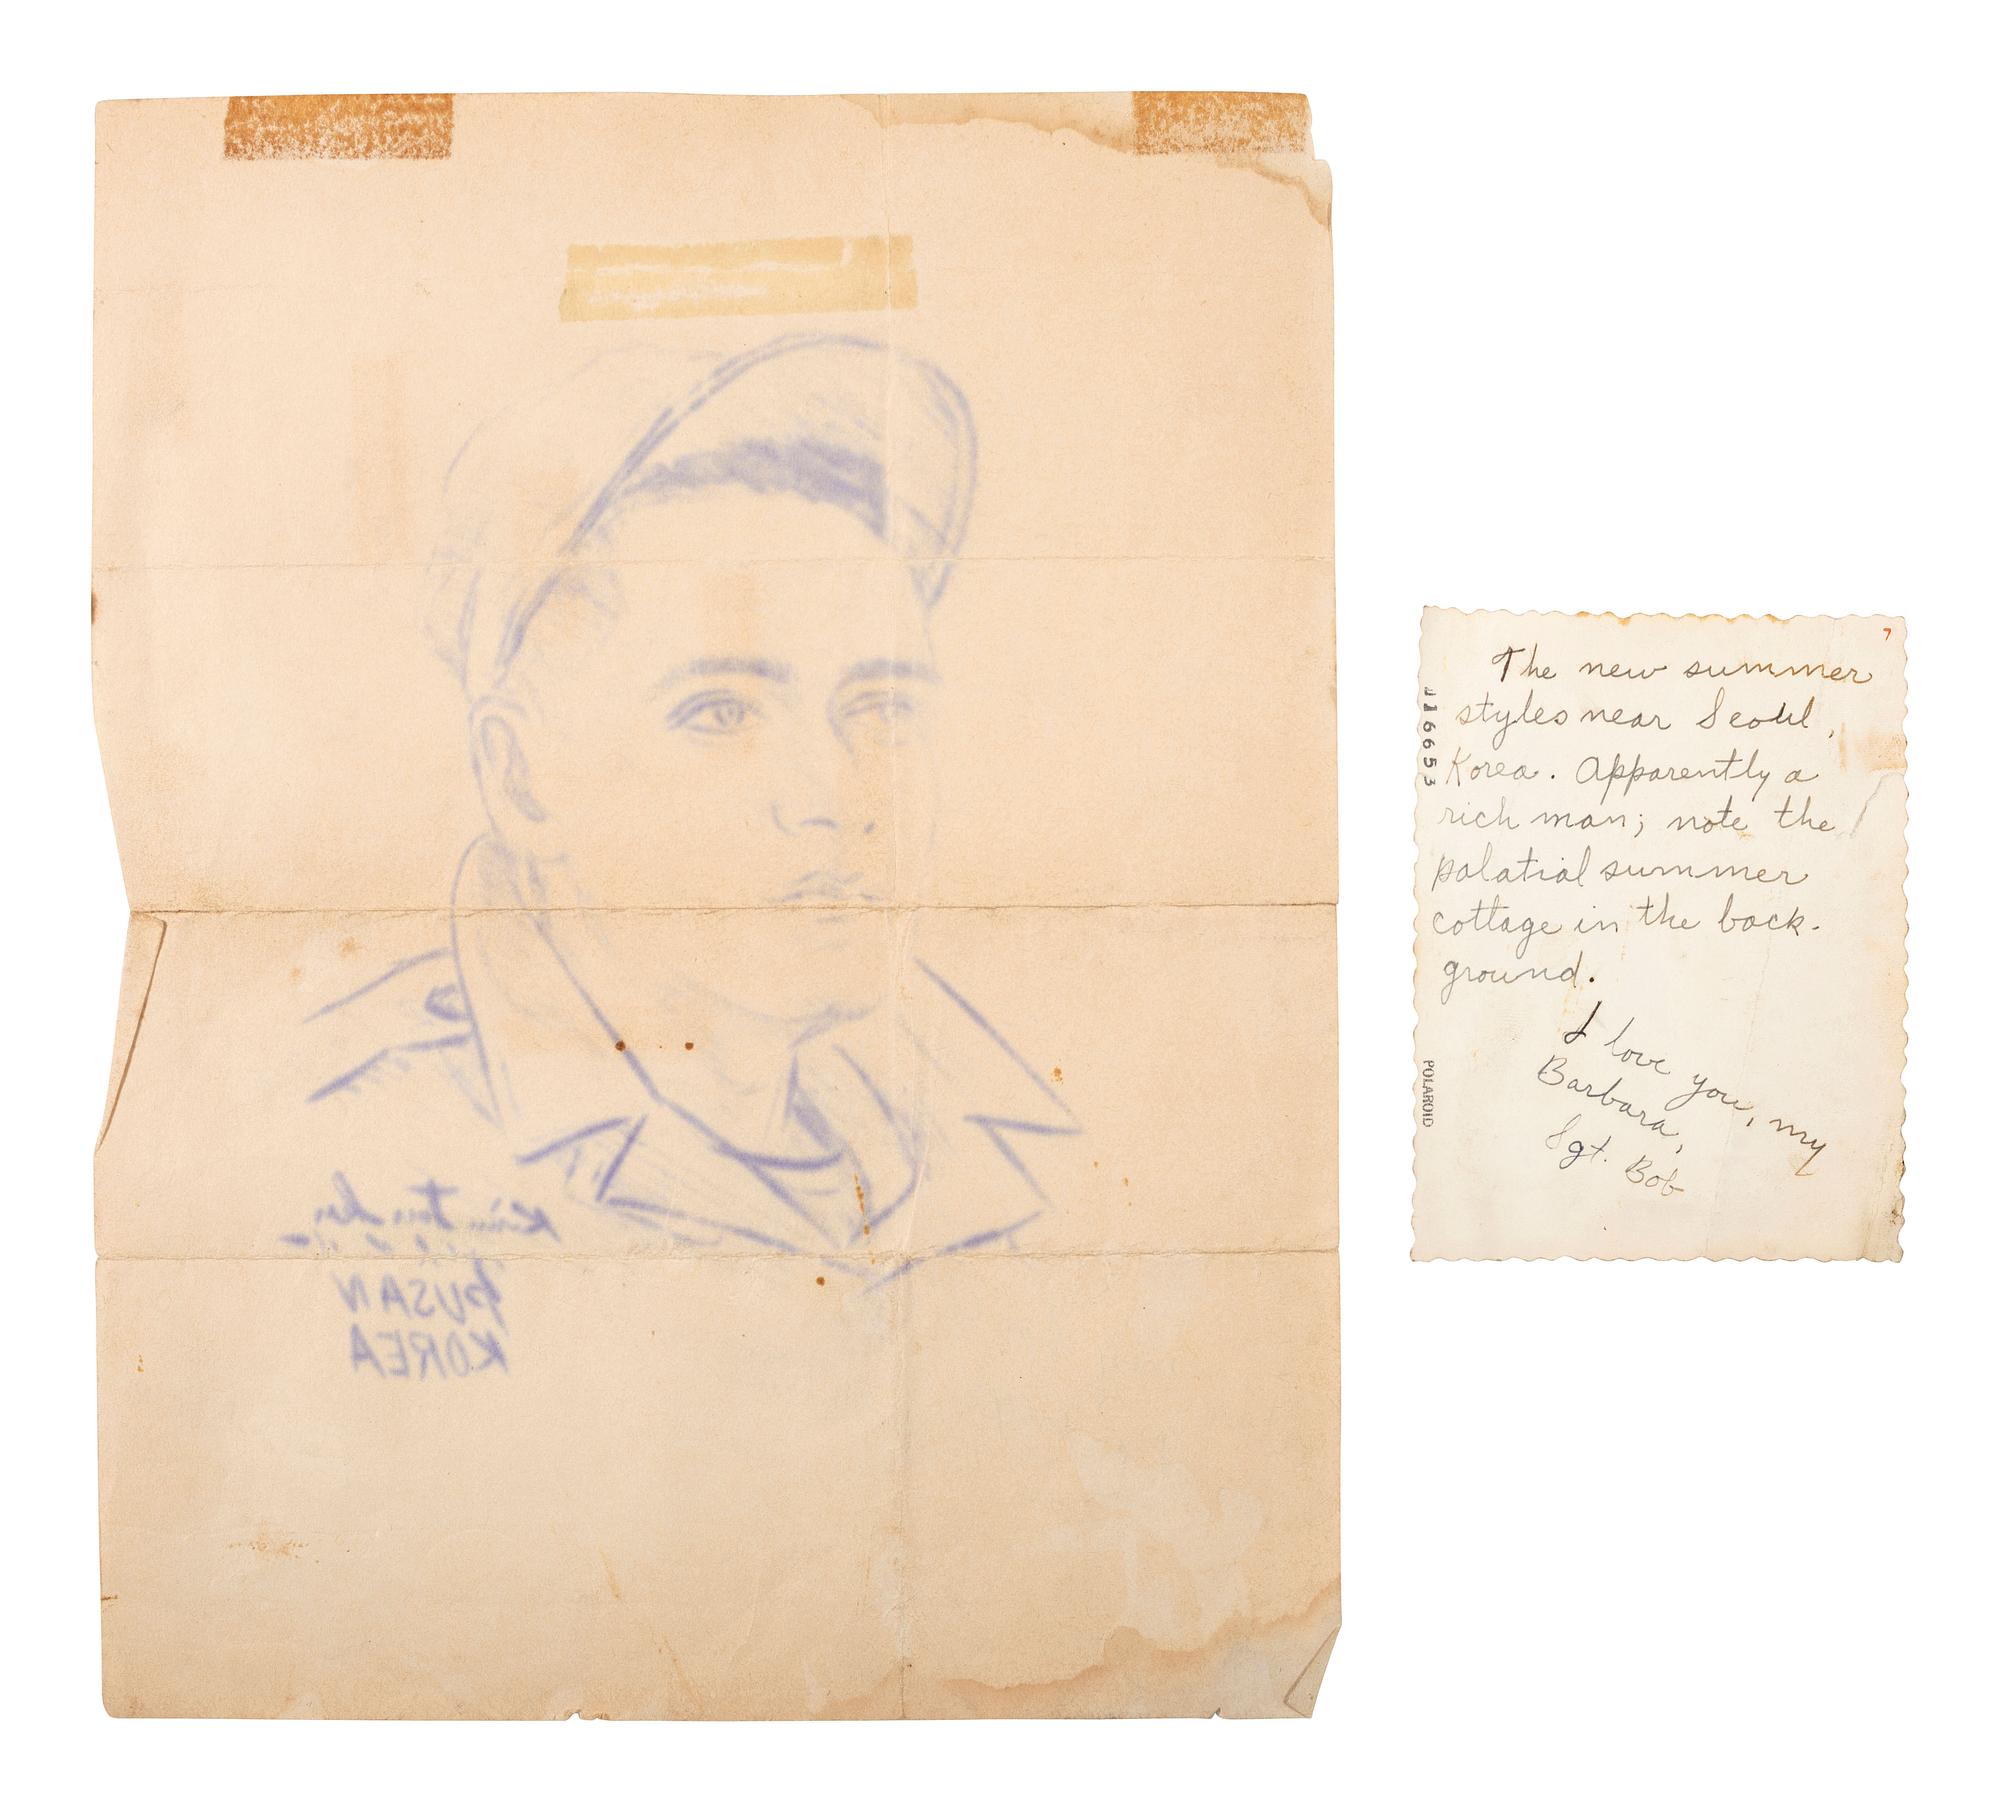 Kim
PUSAN
KOREA
7
The new summer
styles near Seoul,
Korea. Apparently a
rich man; note the
palatial summer
cottage in the back-
ground.
I love you, my
Barbara,
Sgt. Bob
116653
POLAROID